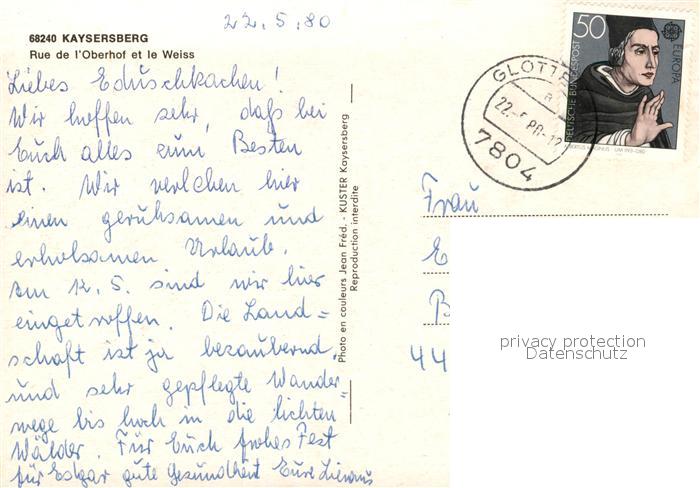 22.5.80
68240 KAYSERSBERG
Rue de l'Oberhof et le Weiss
Liebes Eduschkachen!
Wir hoffen sehr, daß bei
Euch alles zum Besten
ist. Wir verleben hier
einen geruhsamen und
erholsamen Urlaub.
Am 12. 5. sind wir hier
eingetroffen. Die Land=
schaft ist ja bezaubernd,
und sehr gepflegte Wander=
wege bis hoch in die lichten
Wälder. Für Euch frohes Fest
für Edgar gute Gesundheit Eure
Photo en couleurs Jean Fréd. - KUSTER Kaysersberg
Reproduction interdite
50
DEUTSCHE BUNDESPOST
EUROPA
CEPT
ALBERTUS MAGNUS · UM 1193-1280
GLOTTE
a
22.-5.80-12
7804
Frau
E
B
44
privacy protection
Datenschutz